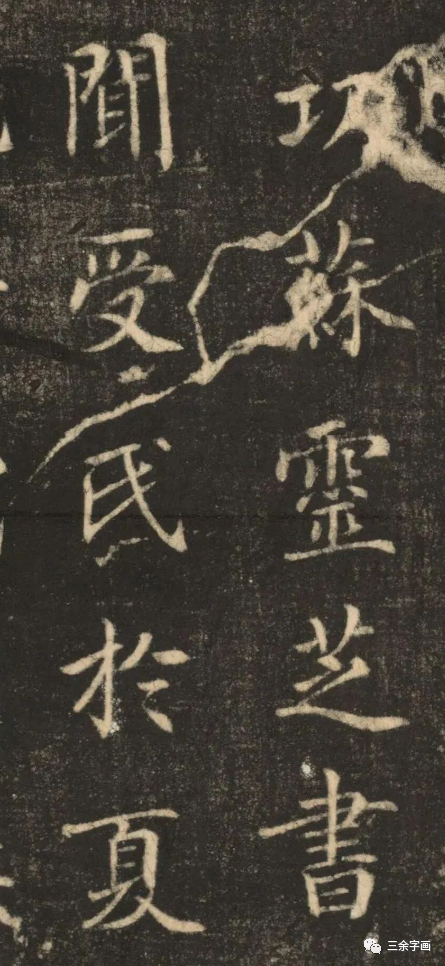 功蘇靈芝書
聞受氏於夏
三余字画